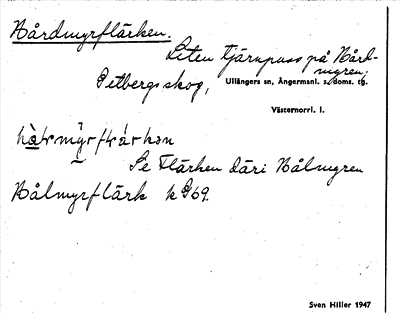 Hårdmyrflärken.
Liten tjärnpuss på Hård-
myren;
Getbergs skog, Ullångers sn, Ångermanl. s. doms. tg.
Västernorrl. l.
Se Flärken däri Hålmyren
Hålmyrflärk k 969.
Sven Hiller 1947